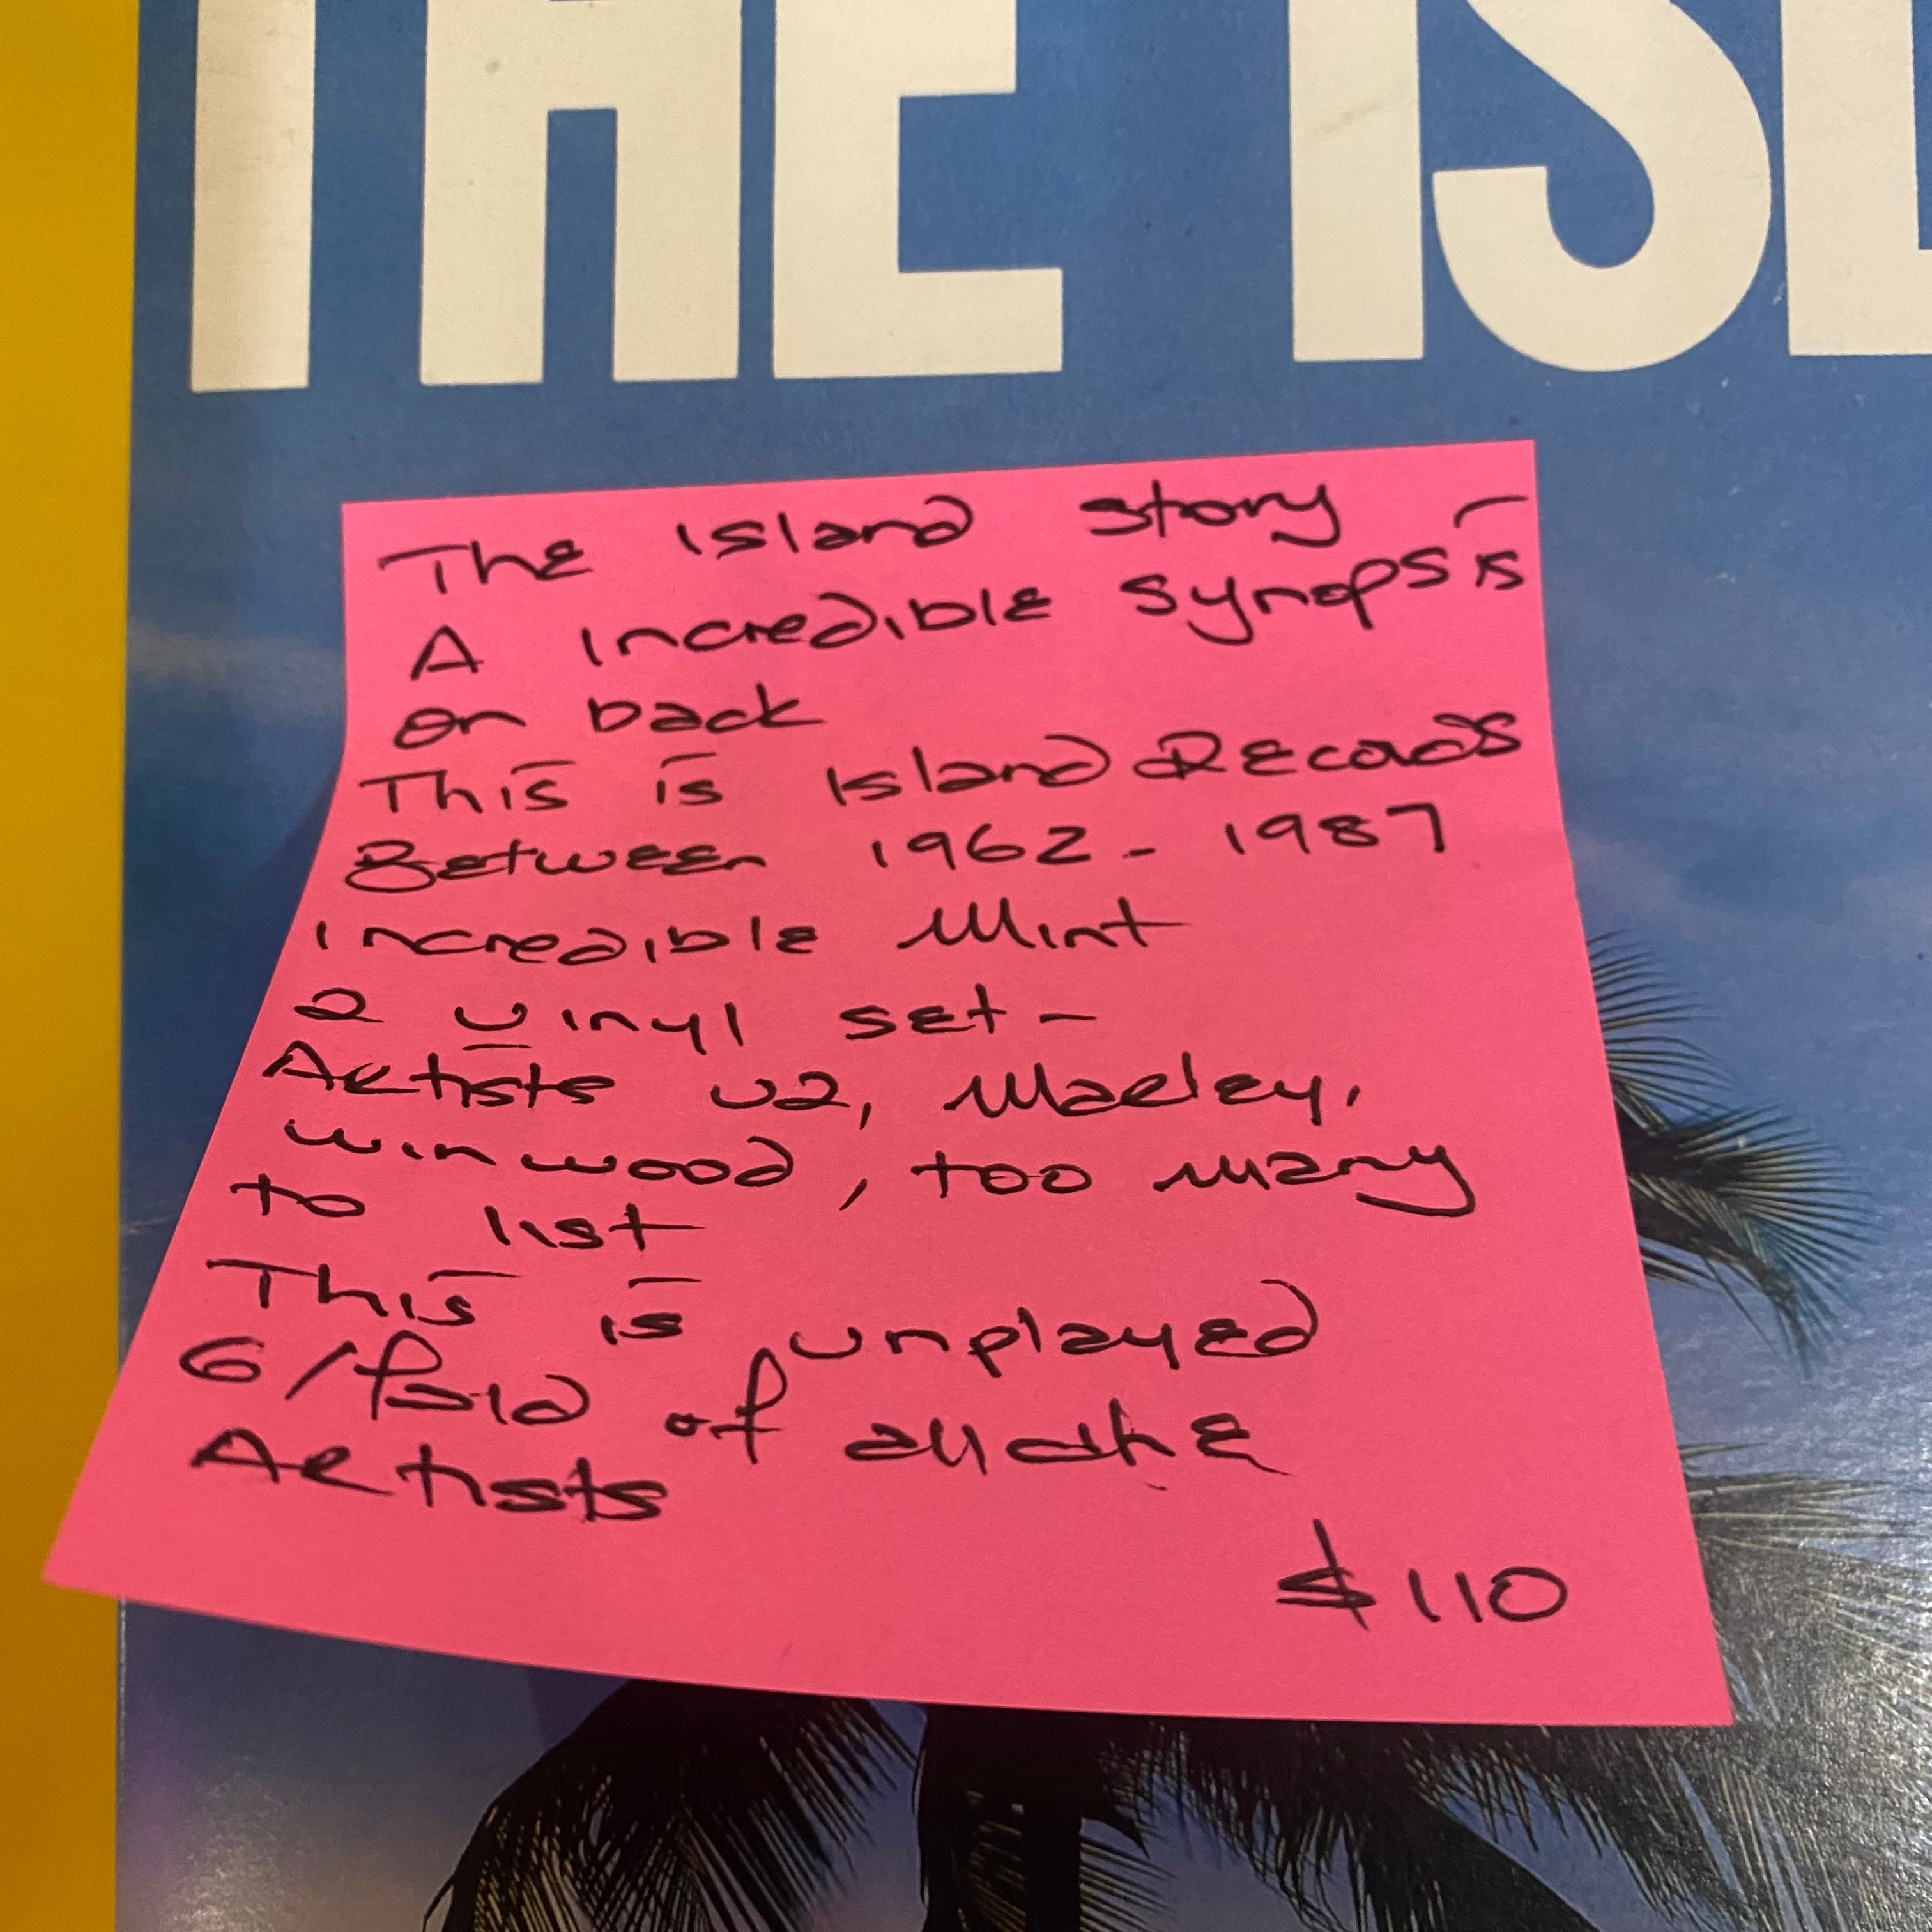 THE ISL
The Island story
A incredible synopsis
on back
This is Island Records
Between 1962 - 1987
incredible Mint
2 vinyl set -
Artists U2, Marley,
winwood, too many
to list
This is unplayed
G/fold of all the
Artists
$110